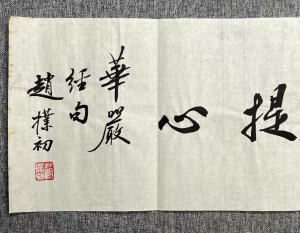 提心
華嚴
經句
趙樸初